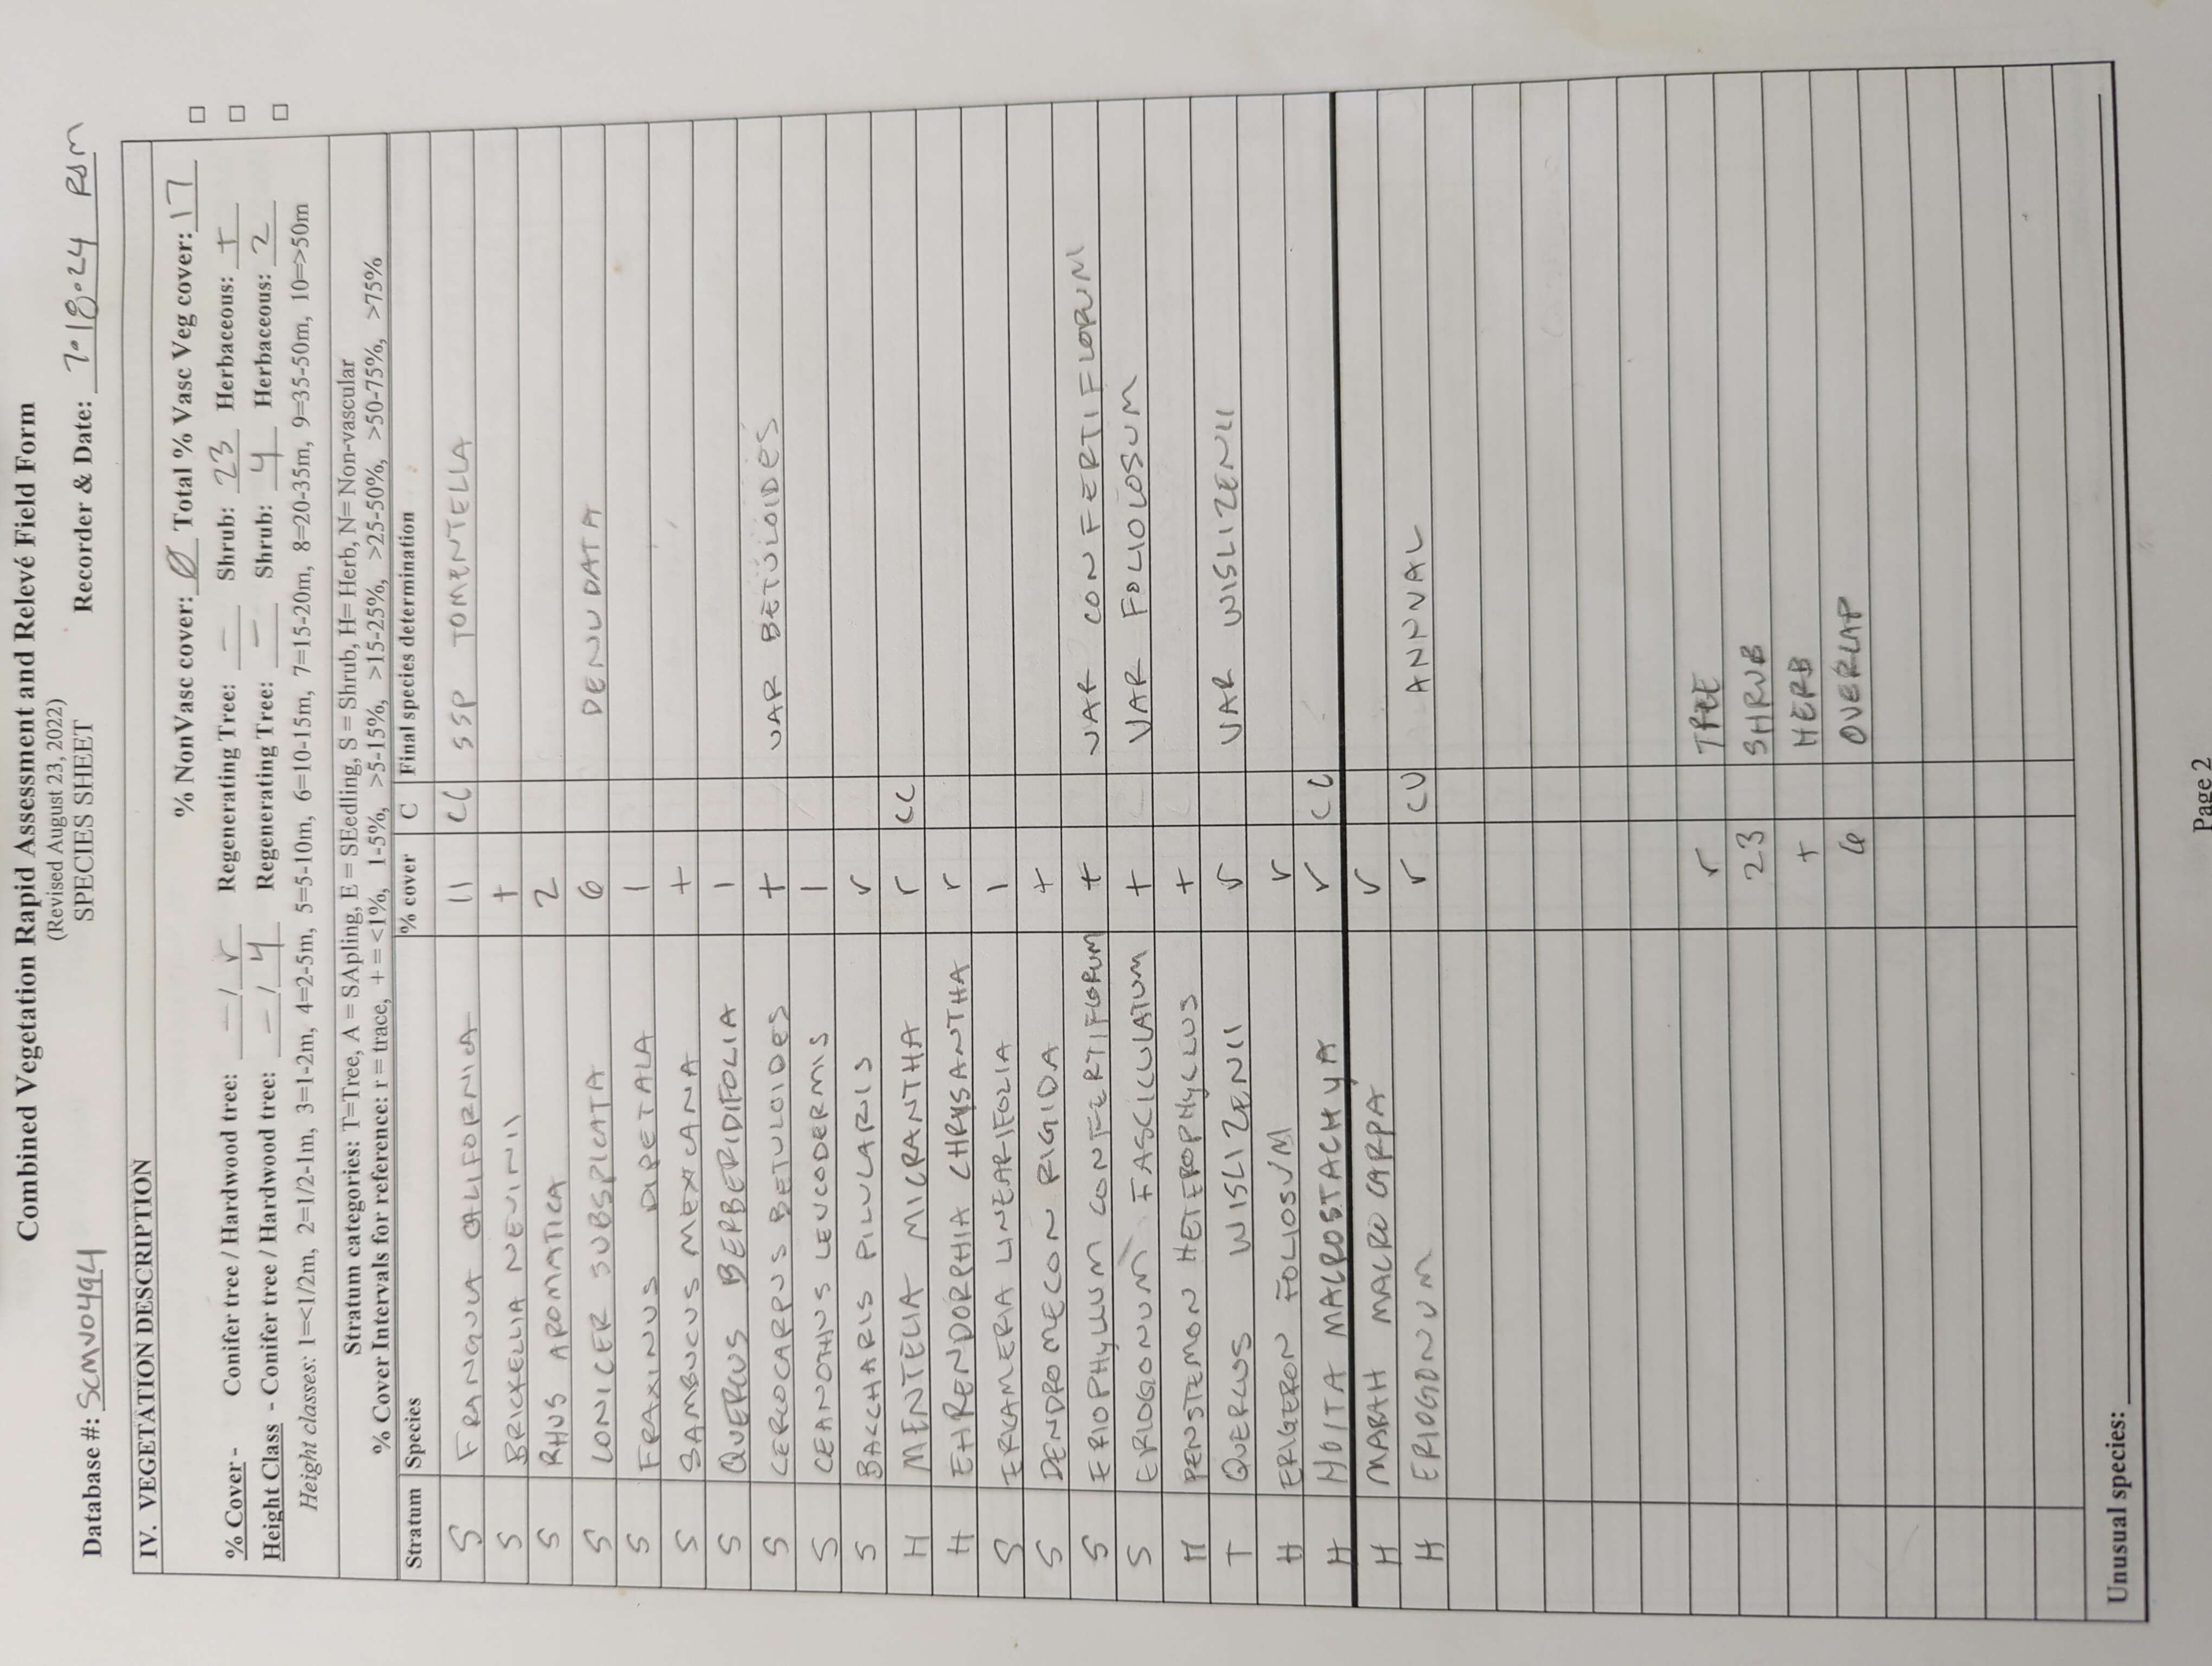 Combined Vegetation Rapid Assessment and Relevé Field Form
(Revised August 23, 2022)
SPECIES SHEET
Database #: SCMV0494 Recorder & Date: 7-18-24 RSM
IV. VEGETATION DESCRIPTION
% NonVasc cover: Ø Total % Vasc Veg cover: 17
% Cover - Conifer tree / Hardwood tree: — / r Regenerating Tree: — Shrub: 23 Herbaceous: +
Height Class - Conifer tree / Hardwood tree: — / 4 Regenerating Tree: — Shrub: 4 Herbaceous: 2
Height classes: 1=<1/2m, 2=1/2-1m, 3=1-2m, 4=2-5m, 5=5-10m, 6=10-15m, 7=15-20m, 8=20-35m, 9=35-50m, 10=>50m
Stratum categories: T=Tree, A = SApling, E = SEedling, S = Shrub, H= Herb, N= Non-vascular
% Cover Intervals for reference: r = trace, + = <1%, 1-5%, >5-15%, >15-25%, >25-50%, >50-75%, >75%
Stratum Species % cover C Final species determination
S FRANGULA CALIFORNICA 11 CC SSP TOMENTELLA
S BRICKELLIA NEVINII +
S RHUS AROMATICA 2
S LONICER SUBSPICATA 6 DENUDATA
S FRAXINUS DIPETALA 1
S SAMBUCUS MEXICANA +
S QUERCUS BERBERIDIFOLIA 1
S CERCOCARPUS BETULOIDES + VAR BETULOIDES
S CEANOTHUS LEUCODERMIS 1
S BACCHARIS PILULARIS r
H MENTELIA MICRANTHA r CC
H EHRENDORPHIA CHRYSANTHA r
S ERICAMERIA LINEARIFOLIA 1
S DENDROMECON RIGIDA +
S ERIOPHYLLUM CONFERTIFLORUM + VAR CONFERTIFLORUM
S ERIOGONUM FASCICULATUM + VAR FOLIOLOSUM
H PENSTEMON HETEROPHYLLUS +
T QUERCUS WISLIZENII r VAR WISLIZENII
H ERIGERON FOLIOSUM r
H HOITA MACROSTACHYA r CC
H MARAH MACROCARPA r
H ERIOGONUM r CU ANNUAL
r TREE
23 SHRUB
+ HERB
6 OVERLAP
Unusual species:
Page 2